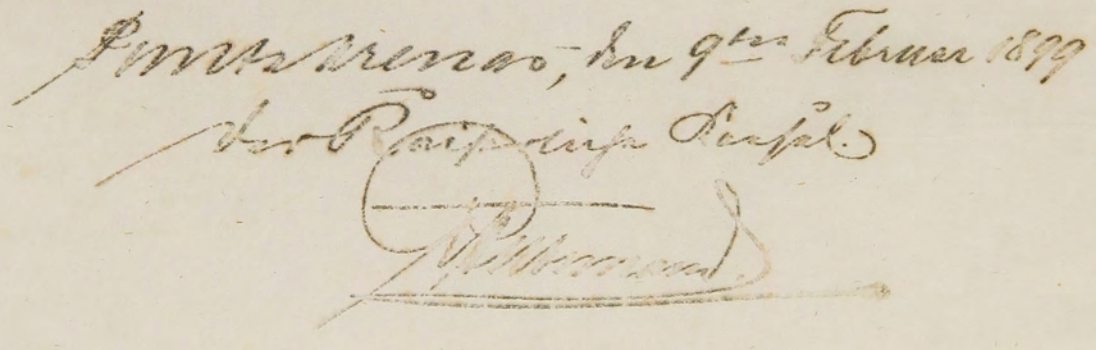 Punta Arenas, den 9ten Februar 1899
Der Kaiserliche Konsul.